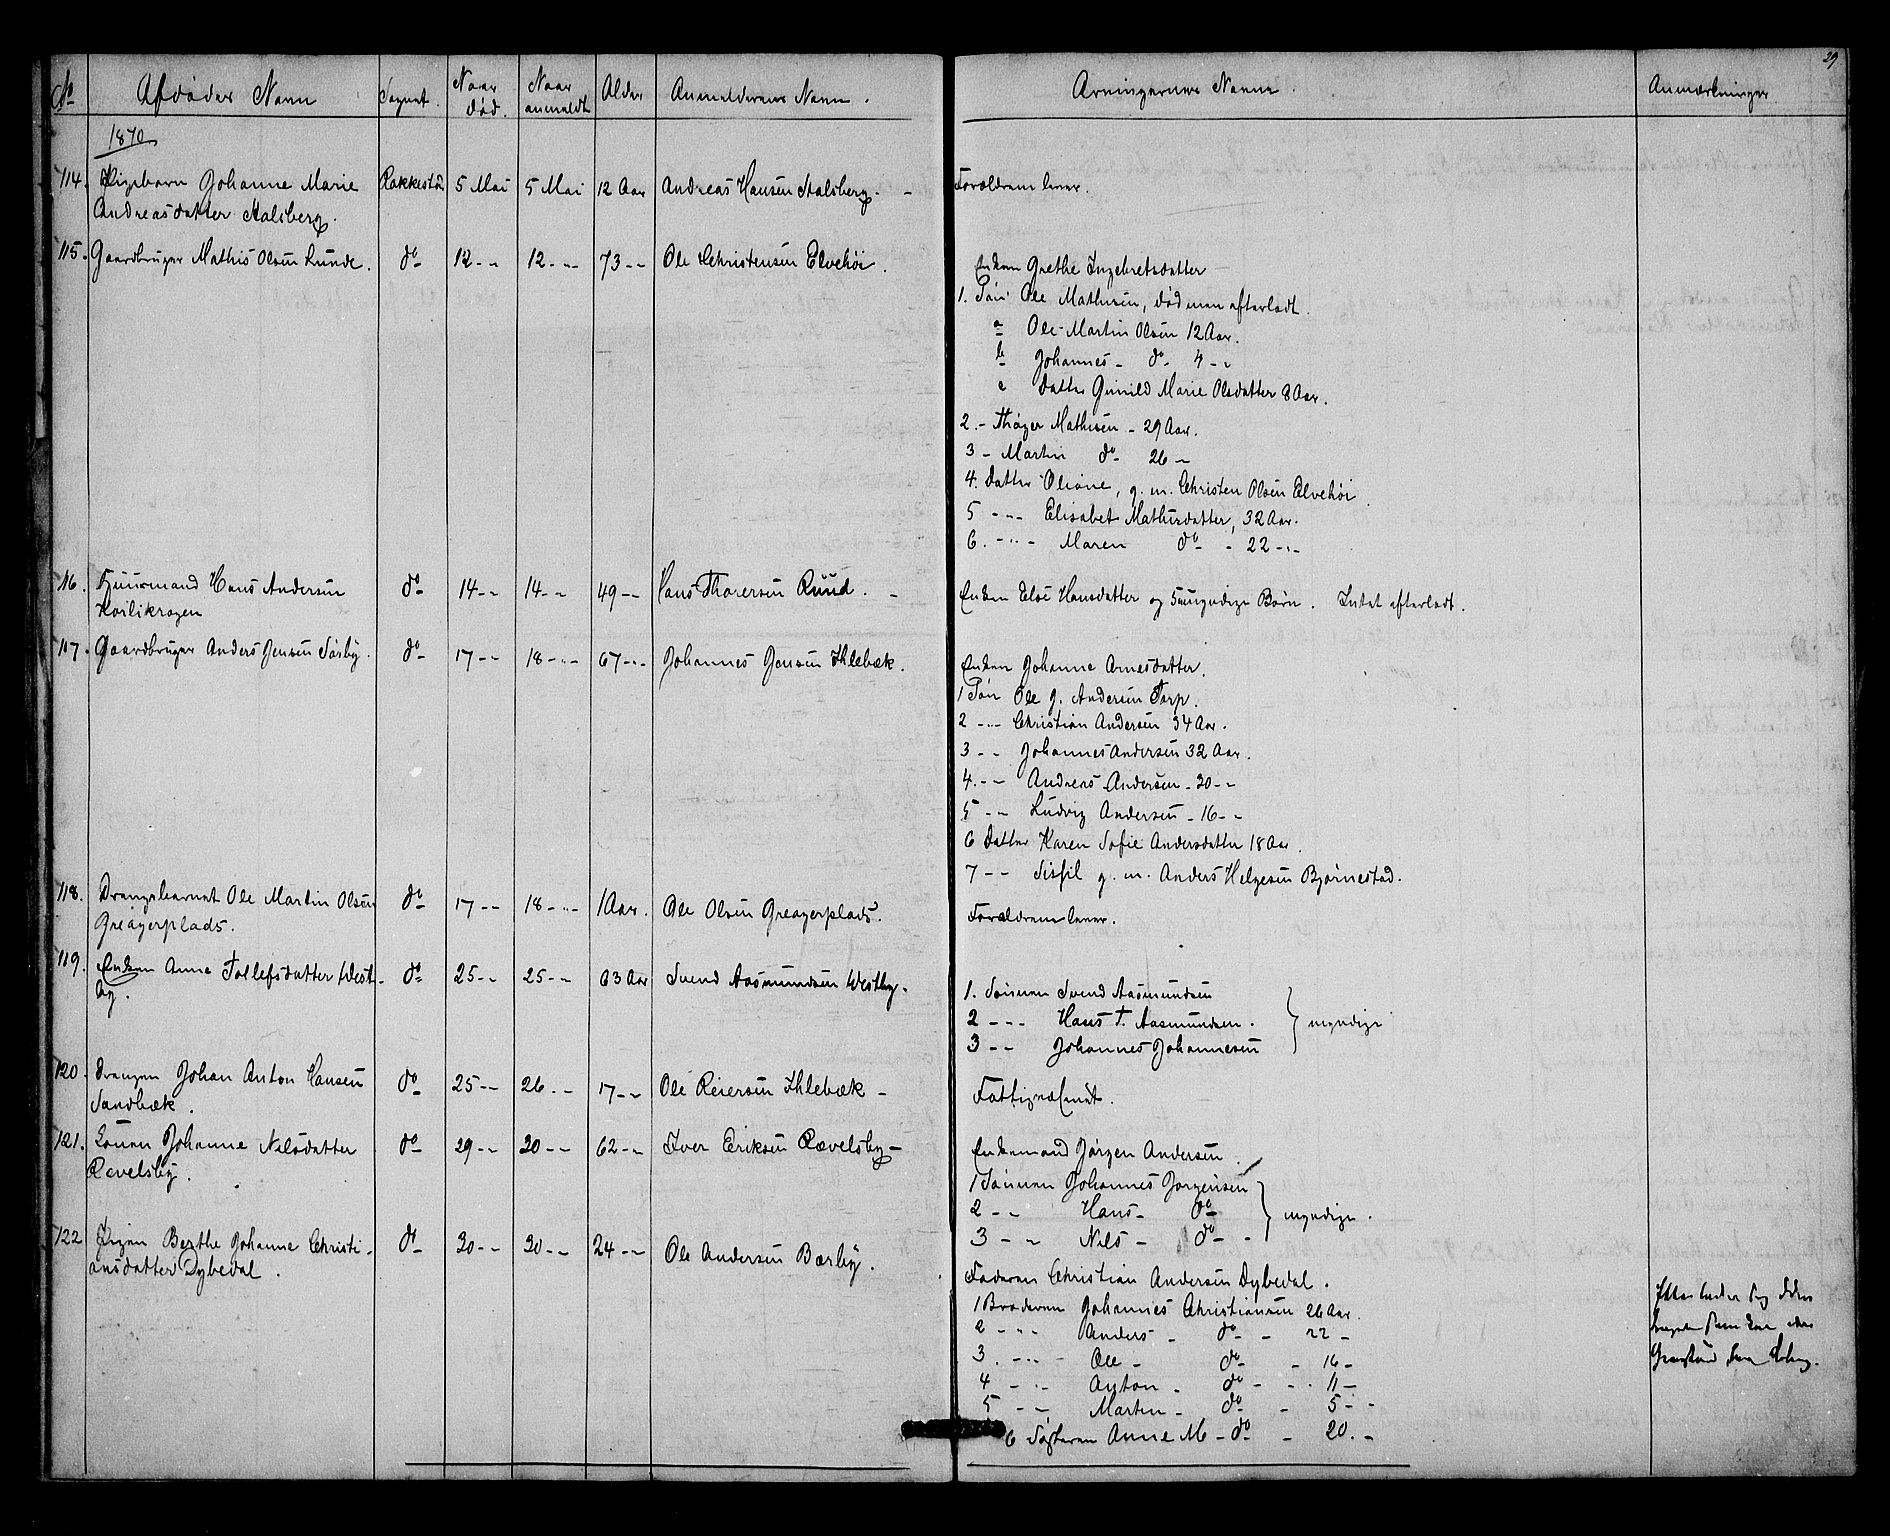 29
No Afdødes Navn Sognet. Naar død. Naar anmeldt Alder Anmelderens Navn. Arvingernes Navne. Anmærkninger
1870
114. Pigebarn Johanne Marie Rakkestad 5 Mai 5 Mai 12 Aar Andreas Hansen Stalsberg. - Forældrene lever.
Andreasdatter Stalsberg.
115. Gaardbruger Mathis Olsen Lunde. do 12 - - 12 - - 73 - - Ole Christensen Elvehøi.
Enken Grethe Ingebretsdatter
1. Søn Ole Mathisen, død men efterladt.
a Ole Martin Olsen 12 Aar.
b Johannes - do - 4 - -
c Datter Gunild Marie Olsdatter 8 Aar.
2. - Thøger Mathisen - 29 Aar.
3 - Martin do - 26 -
4. Datter Oliane, g. m. Christen Olsen Elvehøi
5 - - - Elisabet Mathisdatter, 32 Aar.
6. - - - Maren do - 22 - -
116. Huusmand Hans Andersen do 14 - - 14 - - 49 - - Hans Thoresen Ruud. - Enken Else Hansdatter og 5 umyndige Børn. Intet efterladt.
Korlikragen
117. Gaardbruger Anders Jensen Sørby. do 17 - - 18 - - 67 - - Johannes Jensen Ihlebæk.
Enken Johanne Arnesdatter.
1 Søn Ole g. Andersen Torp.
2 - - Christian Andersen 34 Aar.
3 - - Johannes Andersen 32 Aar.
4. - - Andreas Andersen - 30 - -
5 - - Ludvig Andersen - 16 - -
6 Datter Karen Sofie Andersdatter 18 Aar.
7 - - Sissil g. m. Anders Helgesen Bjørnestad.
118. Drengebarnet Ole Martin Olsen do 17 - - 18 - - 1 Aar. Ole Olsen Greagerplads. Forældrene lever.
Greagerplads.
119. Enken Anne Tollefsdatter West- do 25 - - 25 - - 63 Aar Svend Aasmundsen Westby.
by.
1. Sønnen Svend Aasmundsen
2 - - - Hans T. Aasmundsen. } myndige
3 - - Johannes Johannesen
120. Drengen Johan Anton Hansen do 25 - - 26 - - 17 - - Ole Reiersen Ihlebæk - Fattigvæsenet.
Sandbæk.
121. Konen Johanne Nilsdatter do 29 - - 30 - - 62 - - Iver Eriksen Rævelsby -
Revelsby.
Enkemand Jørgen Andersen.
1 Sønnen Johannes Jørgensen
2 - - Hans - do } myndige.
3 - - Nils - do -
122 Pigen Berthe Johanne Christi- do 30 - - 30 - - 24 - - Ole Andersen Bærby.
ansdatter Dybedal.
Faderen Christian Andersen Dybedal.
1 Broderen Johannes Christiansen 26 Aar.
2 - - Anders - do - 22 -
3. - - - Ole - do - 16 -
4 - - Anton - do - - 11 -
5 - - Martin - do - 5 - -
6 Søsteren Anne M - do - 20. -